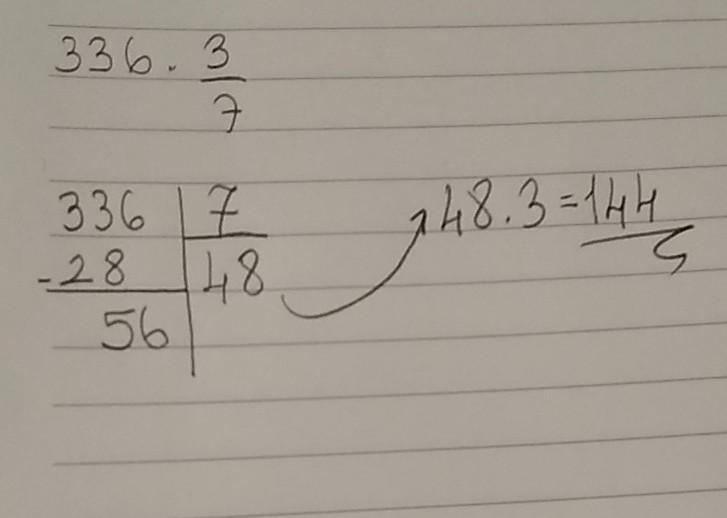 336 . 3/7
336 | 7
-28 | 48
56
48.3=144